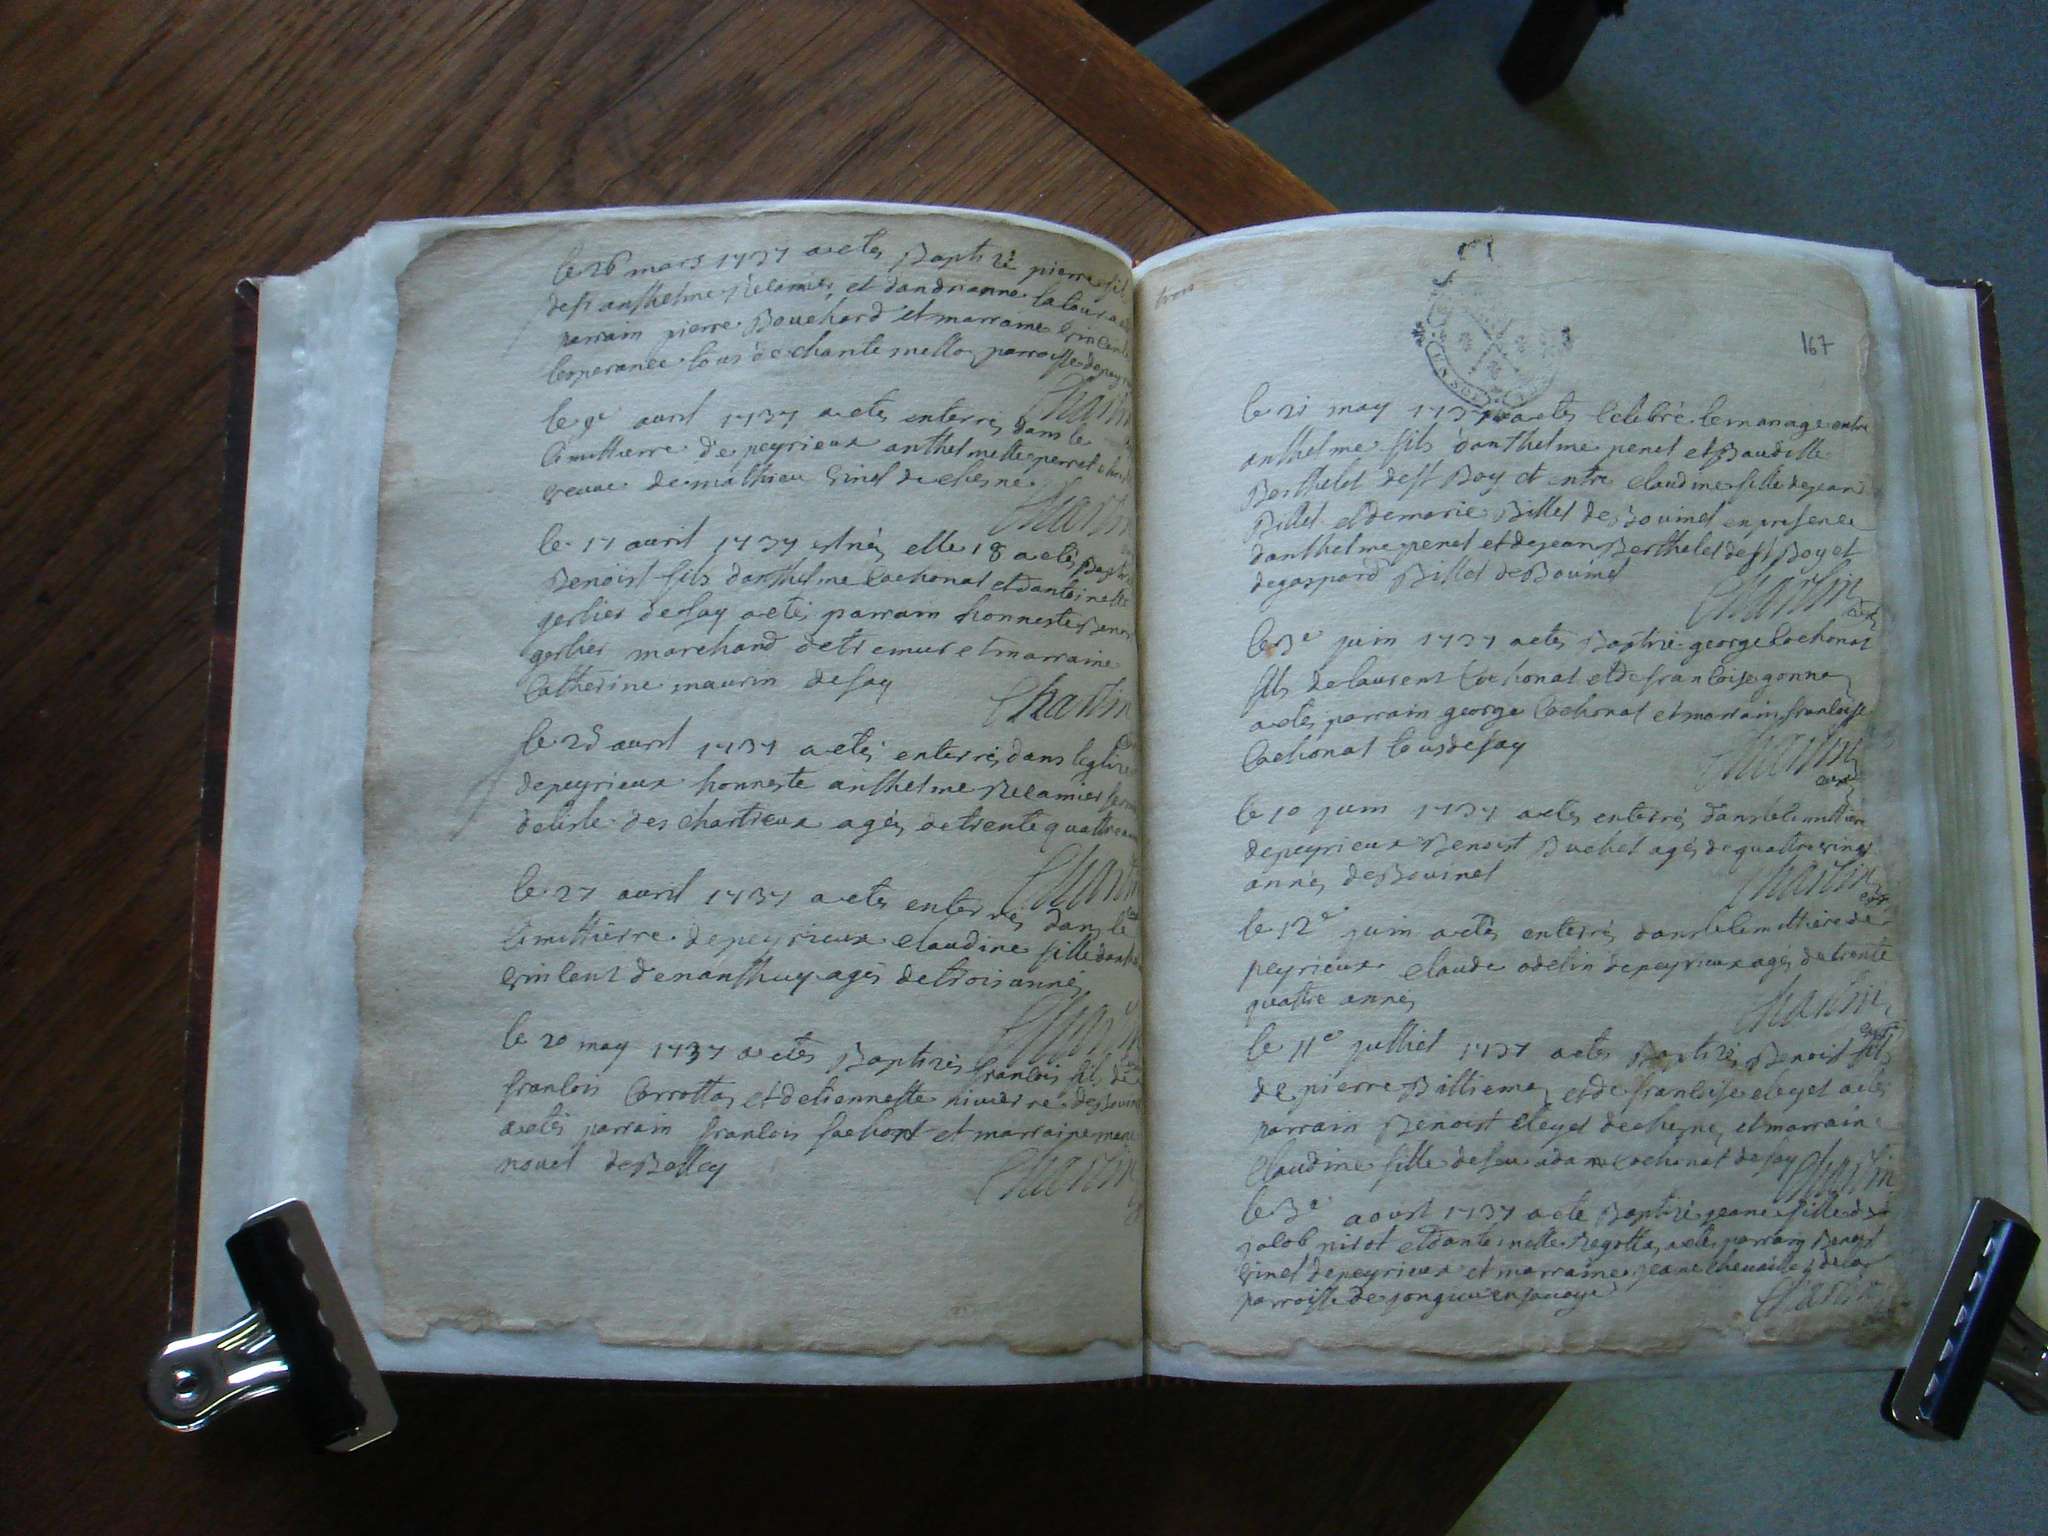 le 26 mars 1737 a etes Baptizé pierre fil
de sr anthelme Recamier, et dandrianne latour a
parrain pierre Bouchard et marraine
lesperance tous de chantemelle, parroisse de pey
Charlin
le 9e avril 1737 a etes enterrés dans le
cimettierre de peyrieux anthelmette perret
veuve de mathieu vinet de chesne
Charlin
le 17 avril 1737 est nés elle 18 a etés Bapt
Benoist fils danthelme Cochonat et dantoinette
gerlier de fay a etés parrain honneste Beno
gerlier marchand de tremur et marraine
Catherine maurin de fay
Charlin
le 25 avril 1737 a etés enterrés dans leglize
de peyrieux honneste anthelme Recamier
de lisle des chartreux agés de trente quattre an
Charlin
le 27 avril 1737 a etes enterrés dans le
cimettierre de peyrieux claudine fille danth
vincent de nanthuy agés de trois annés
Charlin
le 20 may 1737 a etes Baptizés francois fils de
francois Corrottas et detiennette riuierre de Bouin
a etés parrain francois fachon et marraine marie
nouel de Belley
Charlin
167
le 21 may 1737 a etés celebré le mariage entre
anthelme fils danthelme penet et Baudille
Berthelet de st Boy et entre claudine fille de jean
Billet et de marie Billet de Bouinet en presence
danthelme penet et de jean Berthelet de st Boy et
de gaspard Billet de Bouinet
Charlin
curé
le 3e juin 1737 a etés Baptizé george Cochonat
fils de laurent Cochonat et de francoise gonna
a etes parrain george Cochonat et marrain francoise
Cochonat tous de fay
Charlin
curé
le 10 juin 1737 a etes enterrés dans le cimettiere
de peyrieux Benoist Buchet agés de quattre vingt
annés de Bouinet
Charlin
curé
le 12e juin a etés enterrés dans le cimettiere de
peyrieux claude odetin de peyrieux agés de trente
quattre annés
Charlin
curé
le 11e julliet 1737 a etes Baptizés Benoist fils
de pierre Billiemas et de francoise cleyet a etés
parrain Benoist cleyet de chesne et marrain
Claudine fille de feu adam Cochonat de fay
Charlin
le 3e aoust 1737 a ete Baptizé jeanne fille de
jacob nirot et dantoinette Regottas a etes parrain Benoist
vinet de peyrieux et marraine jeanne cheuaillet de la
parroisse de yongieu en sauoye
Charlin